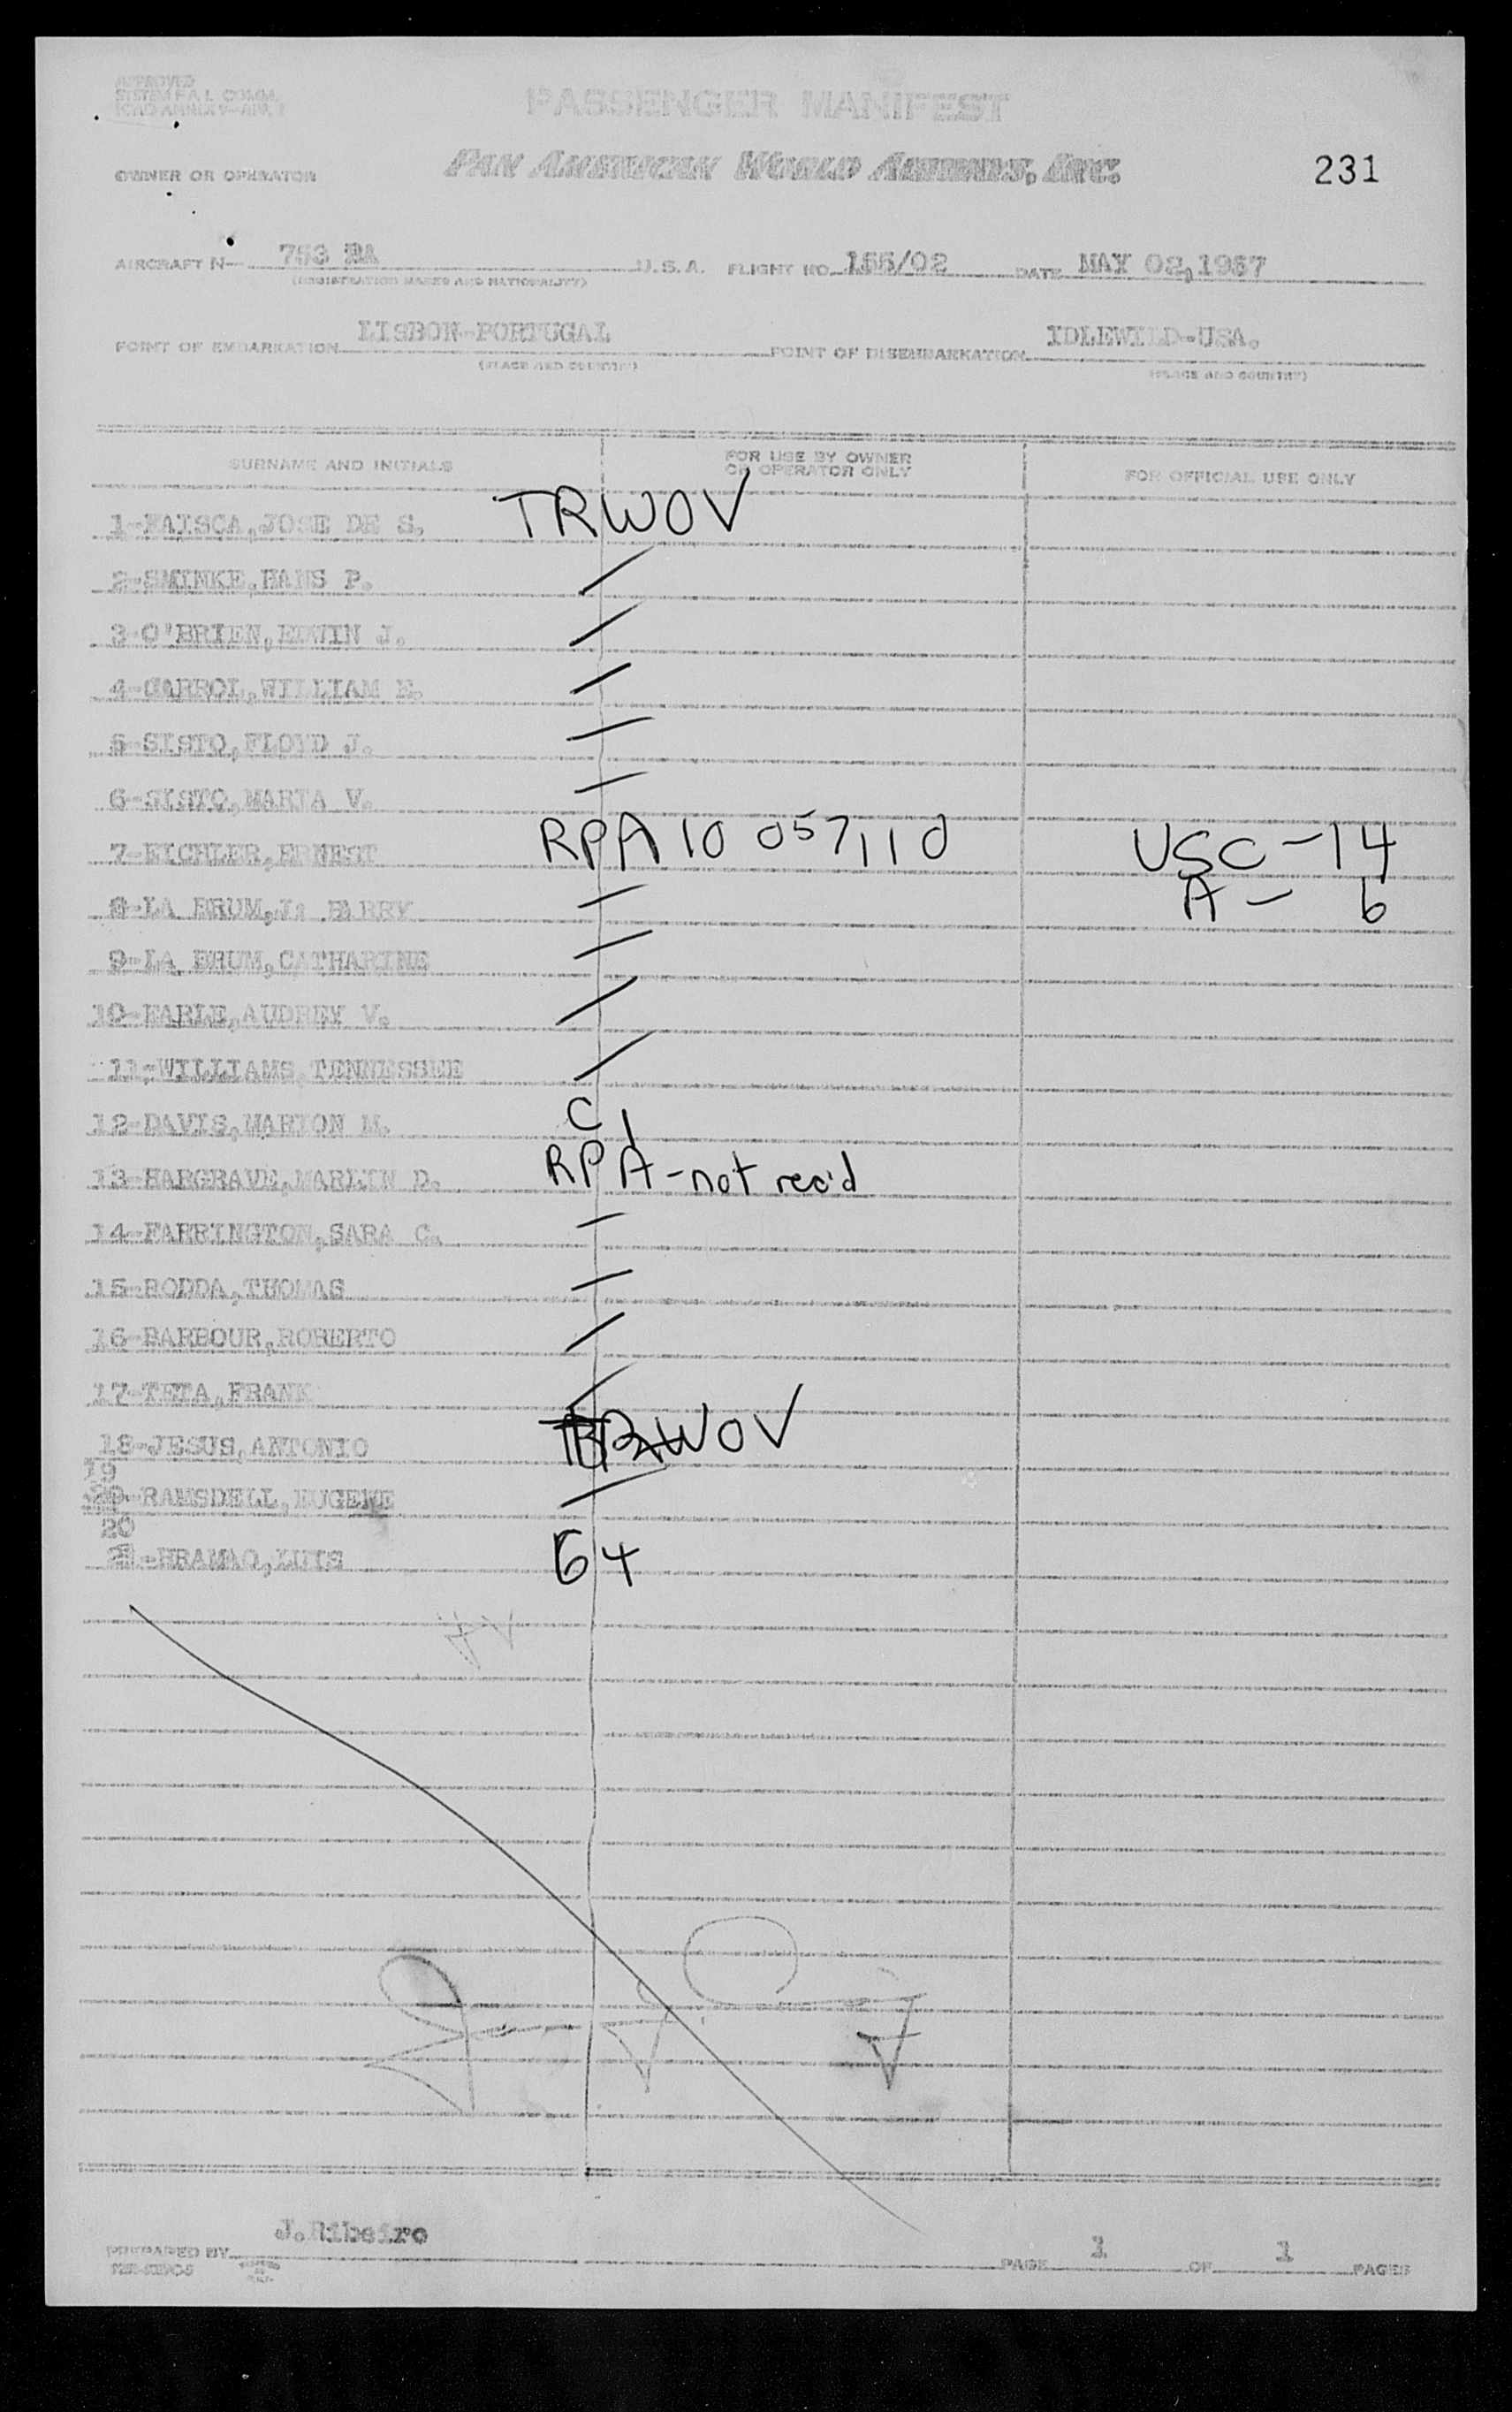 APPROVED
PASSENGER MANIFEST
OWNER OR OPERATOR PAN AMERICAN WORLD AIRWAYS, INC. 231
AIRCRAFT N- U.S.A. FLIGHT NO. 155/02 DATE MAY 02, 1957
(REGISTRATION MARKS AND NATIONALITY)
POINT OF EMBARKATION LISBON-PORTUGAL POINT OF DISEMBARKATION IDLEWILD-USA.
(PLACE AND COUNTRY) (PLACE AND COUNTRY)
SURNAME AND INITIALS FOR USE BY OWNER OR OPERATOR ONLY FOR OFFICIAL USE ONLY
1-FAISCA,JOSE DE S. TRWOV
2-SMINKE,HANS P.
3-O'BRIEN,EDWIN J.
4-CARROL,WILLIAM E.
5-SISTO,FLOYD J.
6-SISTO,MARIA V.
7-EICHLER,ERNEST RPA 10 057110 USC-14
8-LA BRUM,J. HARRY A- 6
9-LA BRUM,CATHARINE
10-EARLE,AUDREY V.
11-WILLIAMS,TENNESSEE
12-DAVIS,MARION M. C 1
13-HARGRAVE,MARLIN D. RPA-not rec'd
14-FARRINGTON,SARA C.
15-RODDA,THOMAS
16-BARBOUR,ROBERTO
17-TETA,FRANK
18-JESUS,ANTONIO TRWOV
19
-RAMSDELL,EUGENE
20
-BRAMAO,LUIS G 4
J.Ribeiro
PREPARED BY PAGE 1 OF 1 PAGES